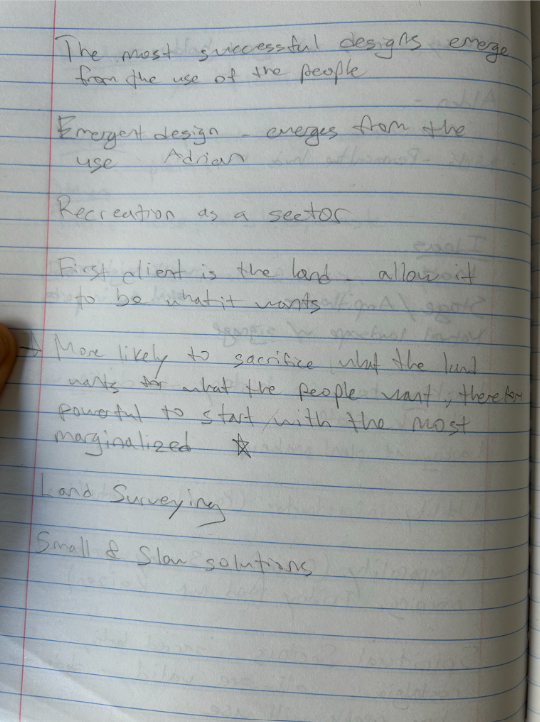 The most successful designs emerge
from the use of the people
Emergent design - emerges from the
use Adrian
Recreation as a sector
First client is the land - allow it
to be what it wants
More likely to sacrifice what the land
wants for what the people want, therefore
powerful to start with the most
marginalized ☆
Land Surveying
Small & Slow solutions